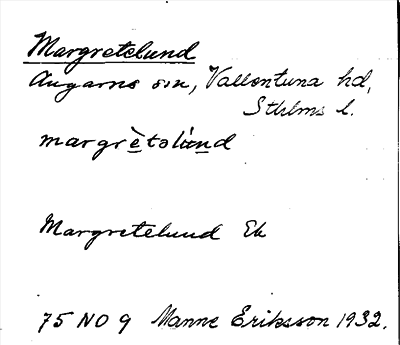 Margretelund
Angarns sn, Vallentuna hd,
Sthlms l.
margrètəlùnd
Margretelund Ek
75 NO 9 Manne Eriksson 1932.